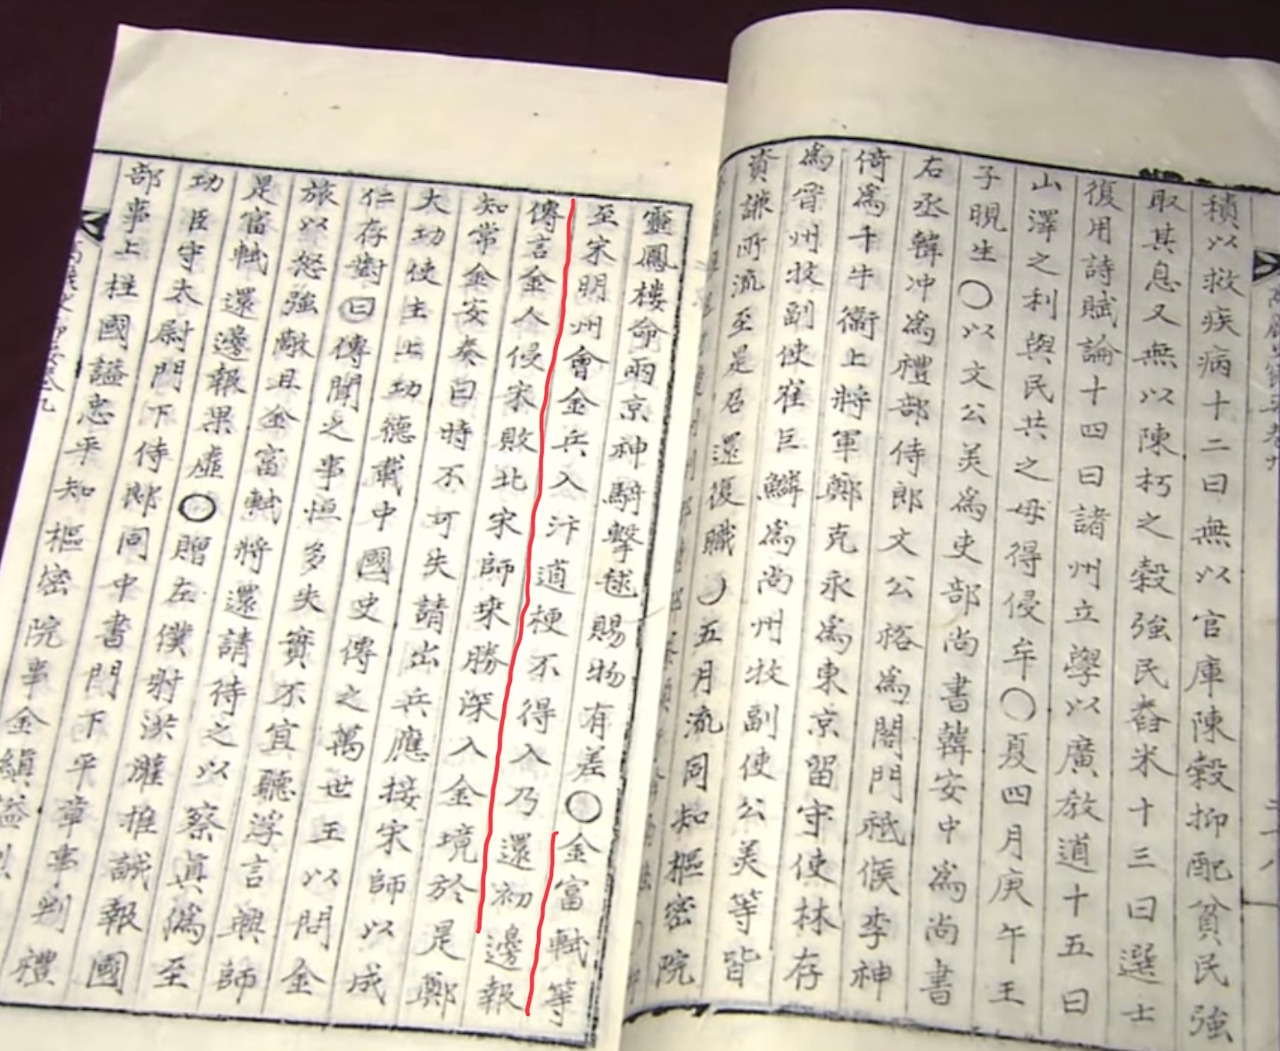 積以救疾病十二曰無以官庫陳穀抑配貧民強
取其息又無以陳朽之穀強民舂米十三曰選士
復用詩賦論十四曰諸州立學以廣敎道十五曰
山澤之利與民共之毋得侵牟〇夏四月庚午王
子晛生〇以文公美爲吏部尚書韓安中爲尚書
右丞韓冲爲禮部侍郎文公裕爲閤門祗候李神
倚爲千牛衞上將軍鄭克永爲東京留守使林存
爲晉州牧副使崔巨鱗爲尚州牧副使公美等皆
資謙所流至是召還復職〇五月流同知樞密院
靈鳳樓命兩京神騎擊毬賜物有差〇金富軾等
至宋明州會金兵入汴道梗不得入乃還初邊報
傳言金人侵宋敗北宋師來勝深入金境於是鄭
知常金安奏曰時不可失請出兵應接宋師以成
大功使主上功德載中國史傳之萬世王以問金
仁存對曰傳聞之事恒多失實不宜聽浮言興師
旅以怒強敵且金富軾將還請待之以察眞僞至
是富軾還邊報果虛〇贈左僕射洪灌推誠報國
功臣守太尉門下侍郎同中書門下平章事判禮
部事上柱國謚忠平知樞密院事金縝謚